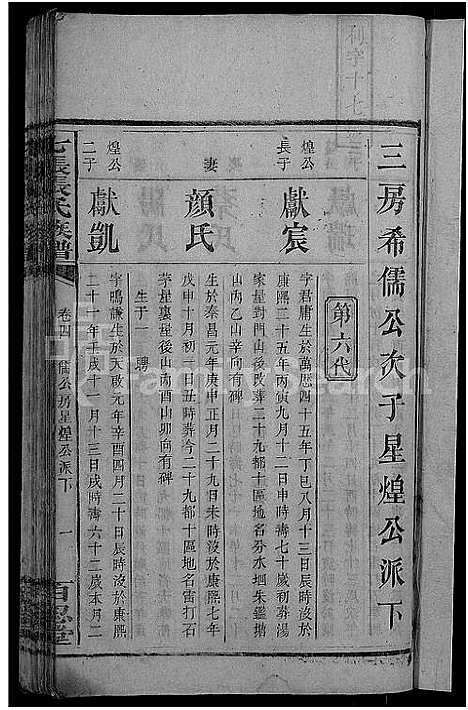 三房希儒公次子星煌公派下
第六代
煌公長子
獻宸
字君庸生於萬曆四十五年丁巳八月十三日辰時沒於
康熙二十五年丙寅九月十二日申時壽七十歲初葬湯
家星對門山後改葬二十九都十區地名分水堌朱鑑塘
山內乙山辛向有碑
妻
顔氏
生於泰昌元年庚申正月二十九日未時沒於康熙七年
戊申十月初三日丑時葬今二十九都十區地名雷打石
茅星裏星後山內酉山卯向有碑
生子一 聘
煌公二子
獻凱
字鳴謙生於天啟元年辛酉四月二十日辰時沒於康熙
二十一年壬戌十一月十三日戌時壽六十二歲本月二
七張張氏族譜
卷四
儒公房星煌公派下
一
百忍堂